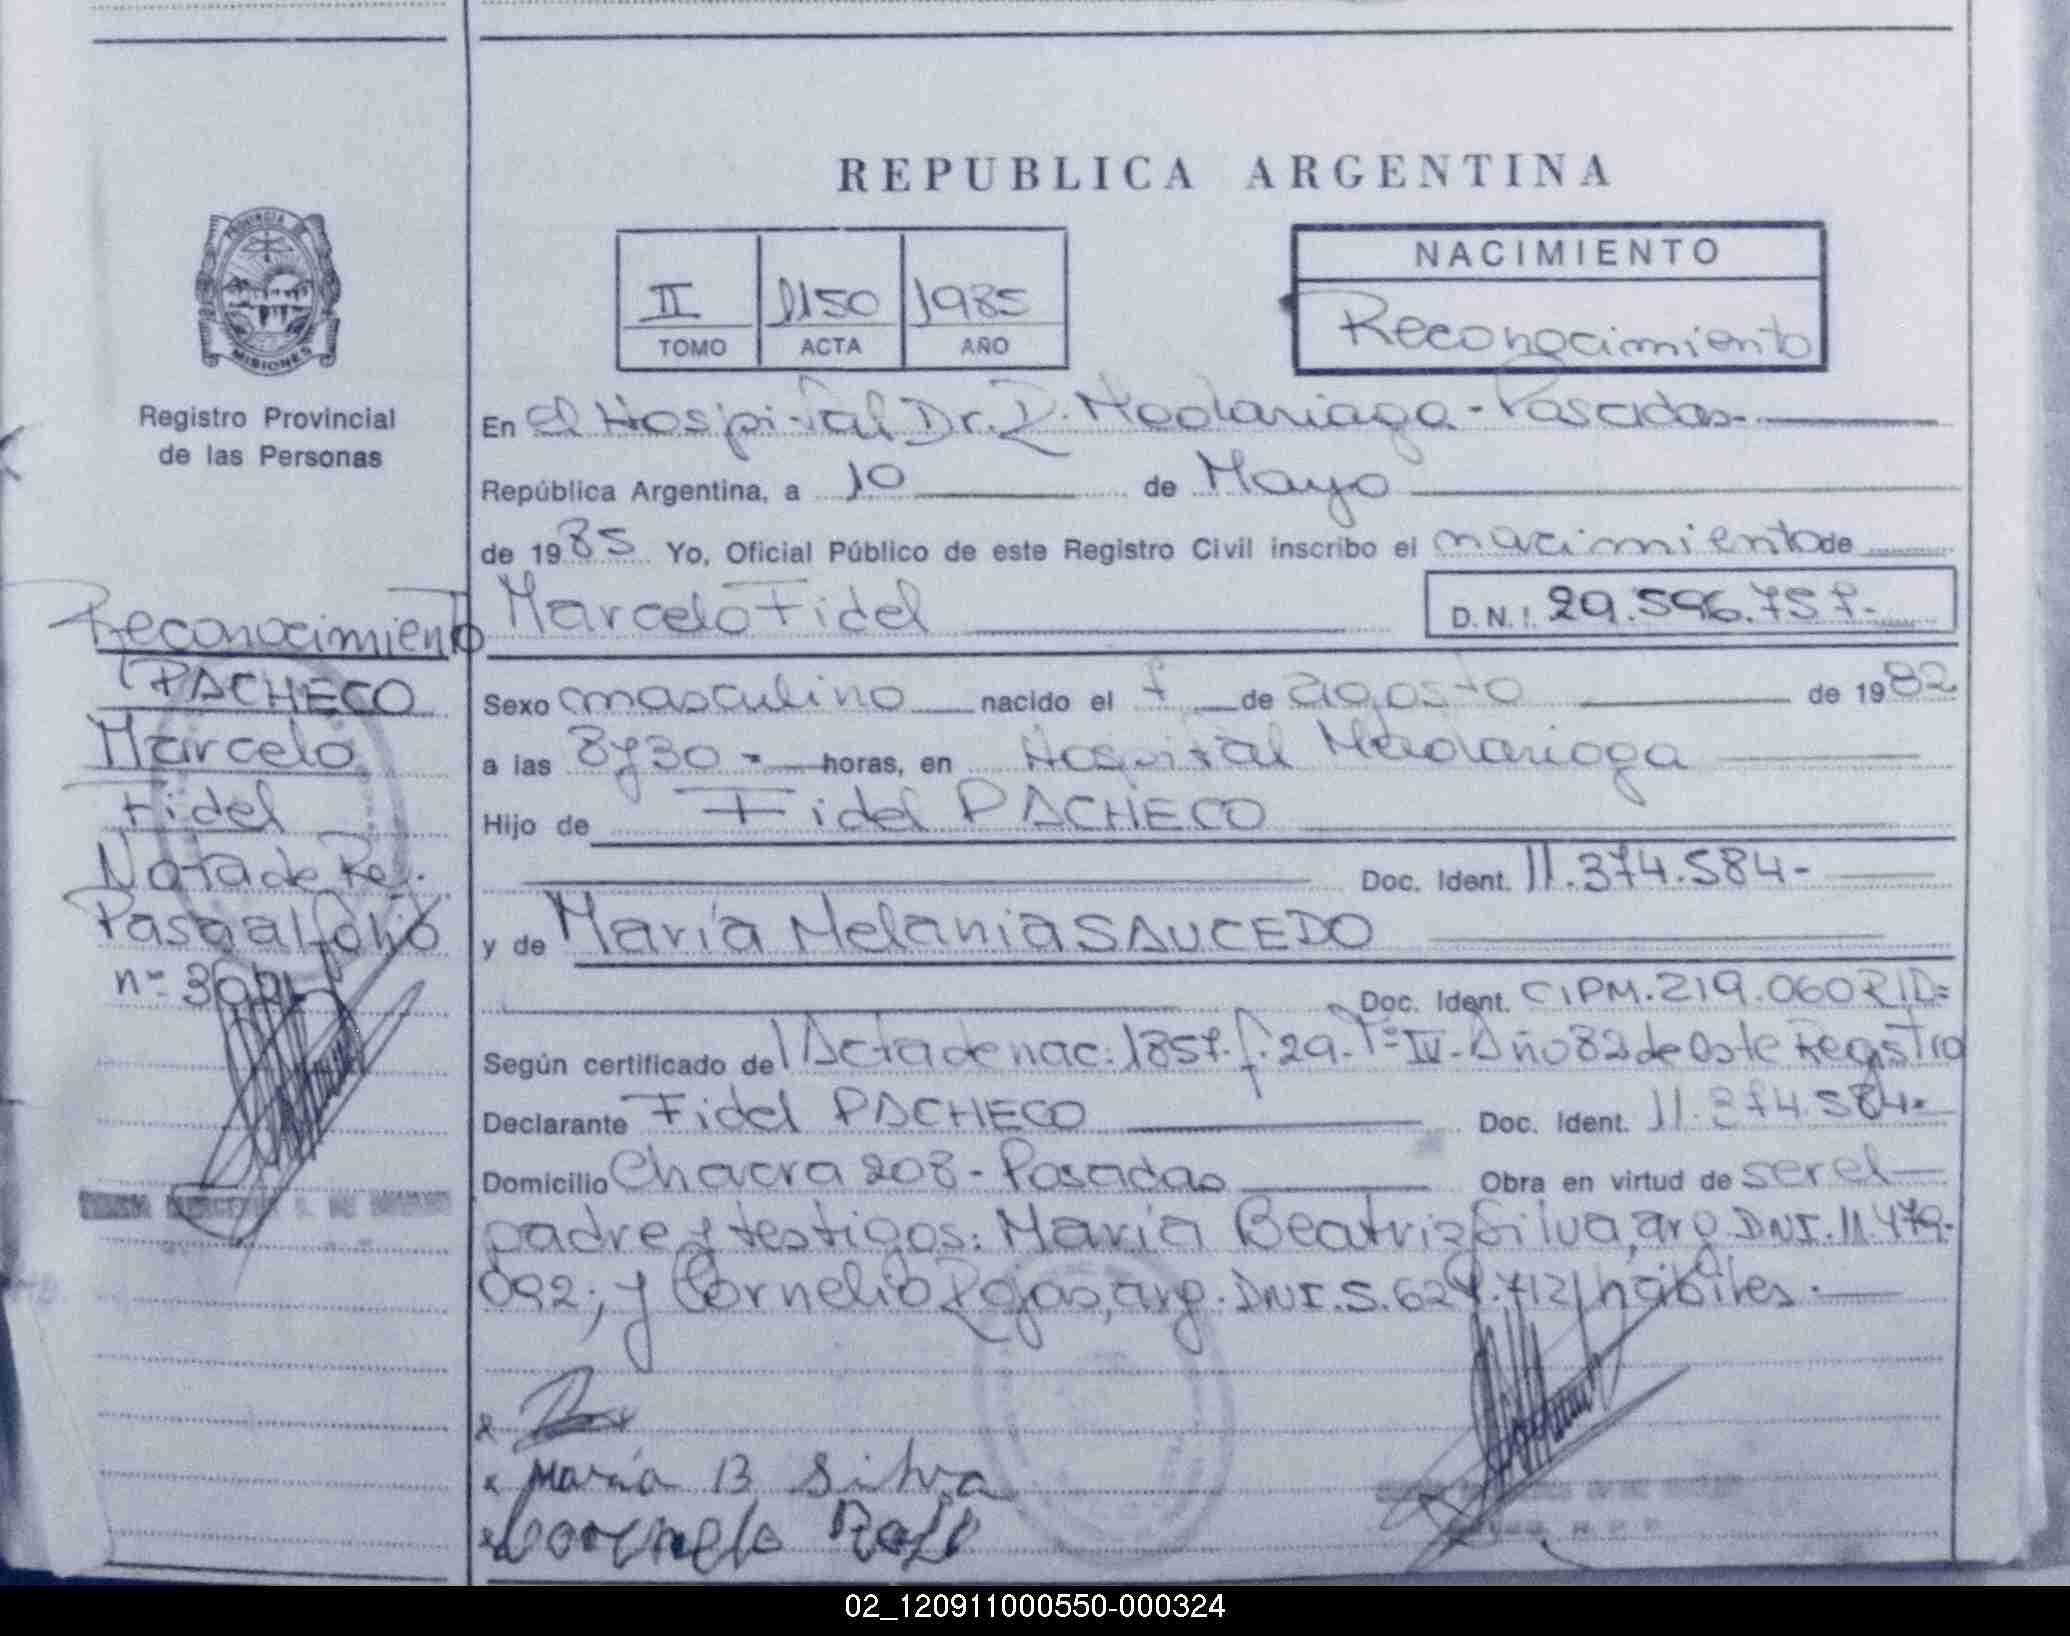 REPUBLICA ARGENTINA
PROVINCIA DE
MISIONES
Registro Provincial
de las Personas
II 1150 1985
TOMO ACTA AÑO
NACIMIENTO
Reconocimiento
En el Hospital Dr. R. Madariaga - Posadas -
República Argentina, a 10 de Mayo
de 1985 Yo, Oficial Público de este Registro Civil inscribo el nacimiento de
Marcelo Fidel D.N.I. 29.596.757.-
Sexo masculino nacido el 7 de agosto de 1982
a las 8 y 30 - horas, en Hospital Madariaga
Hijo de Fidel PACHECO
Doc. Ident. 11.374.584-
y de María Melania SAUCEDO
Doc. Ident. CIPM. 219.060 RID=
Según certificado de Acta de nac: 1857. f. 29. Tº IV. Año 82 de este Registro
Declarante Fidel PACHECO Doc. Ident. 11.374.584-
Domicilio Chacra 208 - Posadas Obra en virtud de ser el
padre y testigos: María Beatriz Silva, arg DNI. 11.479-
092; y Cornelio Rojas, arg. DNI. 5.627.712, hábiles.
Reconocimiento
PACHECO
Marcelo
Fidel
Nota de Ref.
Pasa al folio
nº
x María B Silva
02_120911000550-000324